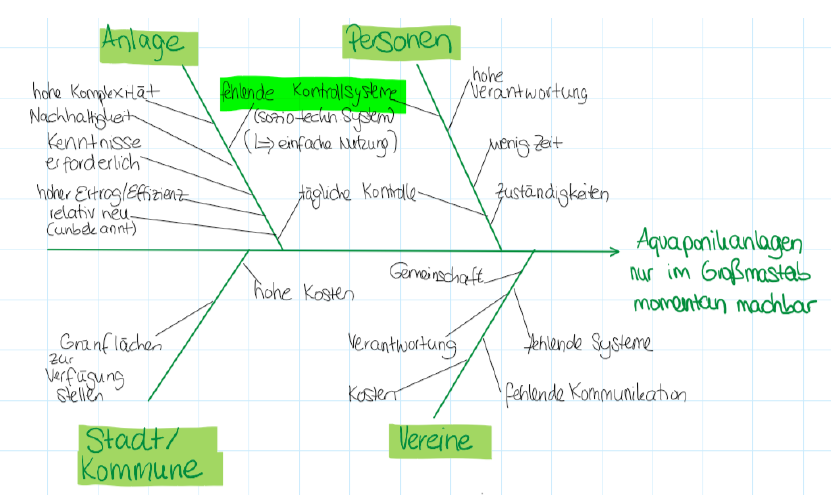 Anlage
Personen
hohe Komplexität
Nachhaltigkeit
Kenntnisse
erforderlich
hoher Ertrag/Effizienz
relativ neu
(unbekannt)
fehlende Kontrollsysteme
(sozio-techn System)
(↳ einfache Nutzung)
tägliche Kontrolle
hohe
Verantwortung
wenig Zeit
Zuständigkeiten
Aquaponikanlagen
nur im Großmastab
momentan machbar
hohe Kosten
Granflächen
zur
Verfügung
stellen
Gemeinschaft
Verantwortung
Kosten
fehlende Systeme
fehlende Kommunikation
Stadt/
Kommune
Vereine